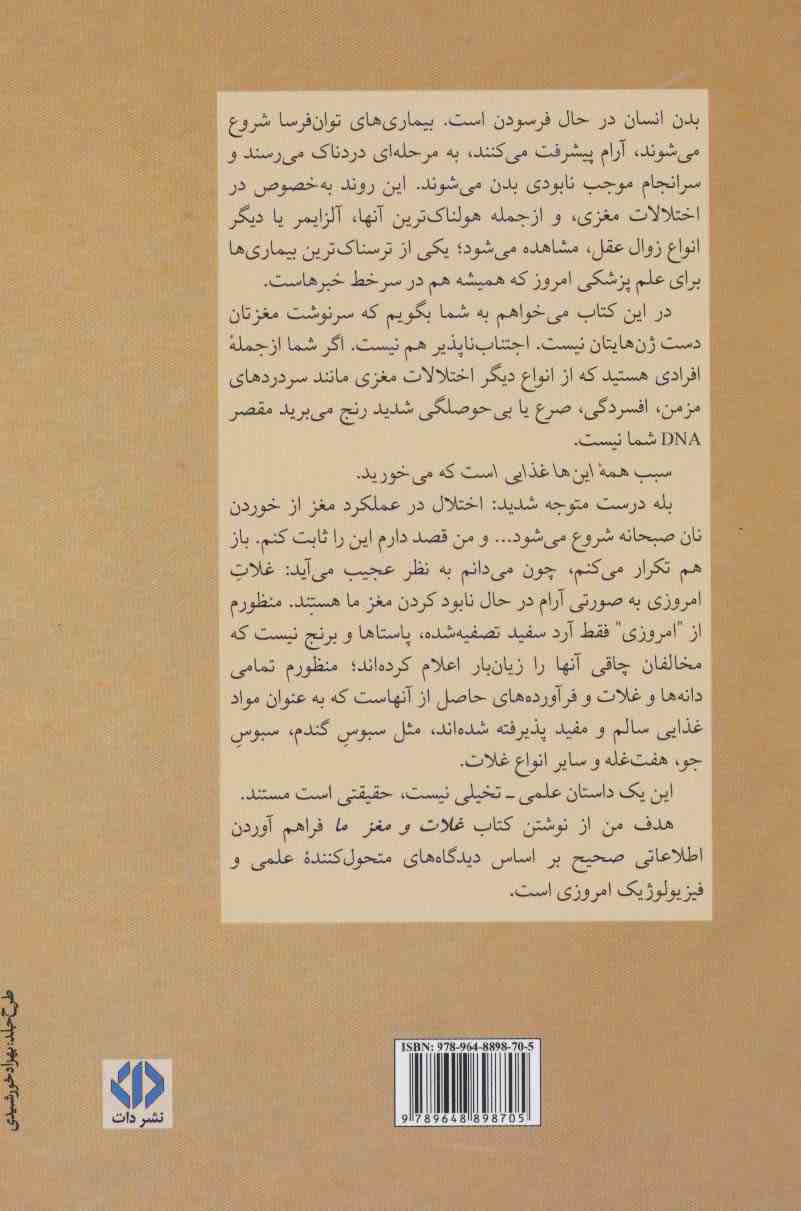 بدن انسان در حال فرسودن است. بیماری‌های توان‌فرسا شروع
می‌شوند، آرام پیشرفت می‌کنند، به مرحله‌ای دردناک می‌رسند و
سرانجام موجب نابودی بدن می‌شوند. این روند به‌خصوص در
اختلالات مغزی، و ازجمله هولناک‌ترین آنها، آلزایمر یا دیگر
انواع زوال عقل، مشاهده می‌شود؛ یکی از ترسناک‌ترین بیماری‌ها
برای علم پزشکی امروز که همیشه هم در سرخط خبرهاست.
در این کتاب می‌خواهم به شما بگویم که سرنوشت مغزتان
دست ژن‌هایتان نیست. اجتناب‌ناپذیر هم نیست. اگر شما ازجملهٔ
افرادی هستید که از انواع دیگر اختلالات مغزی مانند سردردهای
مزمن، افسردگی، صرع یا بی‌حوصلگی شدید رنج می‌برید مقصر
DNA شما نیست.
سبب همهٔ این‌ها غذایی است که می‌خورید.
بله درست متوجه شدید: اختلال در عملکرد مغز از خوردن
نان صبحانه شروع می‌شود... و من قصد دارم این را ثابت کنم. باز
هم تکرار می‌کنم، چون می‌دانم به نظر عجیب می‌آید: غلاتِ
امروزی به صورتی آرام در حال نابود کردن مغز ما هستند. منظورم
از "امروزی" فقط آرد سفید تصفیه‌شده، پاستاها و برنج نیست که
مخالفان چاقی آنها را زیان‌بار اعلام کرده‌اند؛ منظورم تمامی
دانه‌ها و غلات و فرآورده‌های حاصل از آنهاست که به عنوان مواد
غذایی سالم و مفید پذیرفته شده‌اند، مثل سبوسِ گندم، سبوسِ
جو، هفت‌غله و سایر انواع غلات.
این یک داستان علمی ـ تخیلی نیست، حقیقتی است مستند.
هدف من از نوشتن کتاب غلات و مغز ما فراهم آوردن
اطلاعاتی صحیح بر اساس دیدگاه‌های متحول‌کنندهٔ علمی و
فیزیولوژیک امروزی است.
طرح جلد: بهراد خورشیدی
ISBN: 978-964-8898-70-5
9 789648 898705
نشر دات